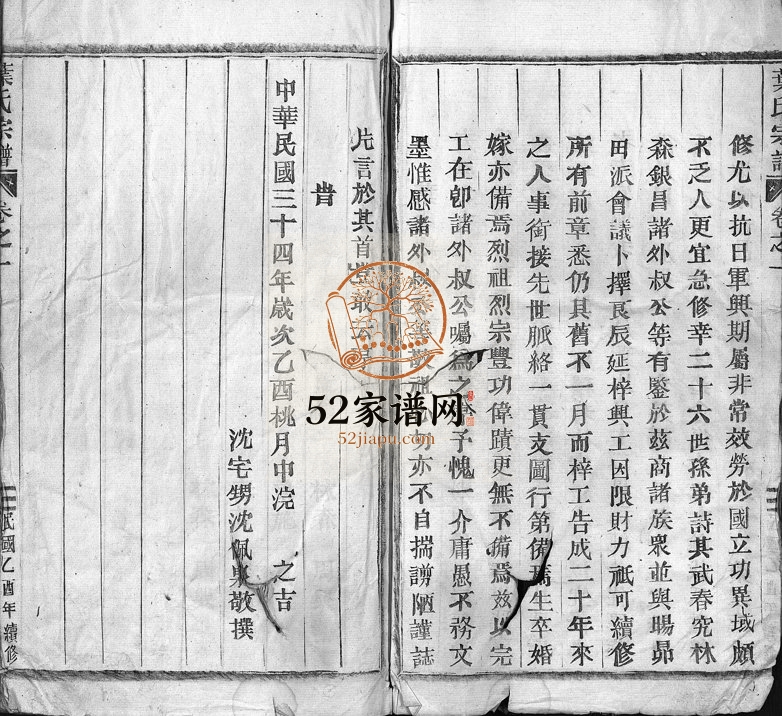 葉氏宗譜 卷之
修尤以抗日軍興期屬非常效勞於國立功異域頗
不乏人更宜急修幸二十六世孫弟詩其武春究林
森銀昌諸外叔公等有鑒於茲商諸族眾並與暘昴
田派會議卜擇良辰延梓興工因限財力祇可續修
所有前章悉仍其舊不一月而梓工告成二十年來
之人事銜接先世脈絡一貫支圖行第備焉生卒婚
嫁亦備焉烈祖烈宗豐功偉蹟更無不備焉茲以完
工在卽諸外叔公囑為之 予愧一介庸愚不務文
墨惟感諸外叔 祖 亦不自揣謭陋謹誌
片言於其首豈敢云
旹
中華民國三十四年歲次乙酉桃月中浣 之吉
沈宅甥沈佩泉敬撰
葉氏宗譜 卷之一
民國乙酉年續修
52家谱网
52jiapu.com